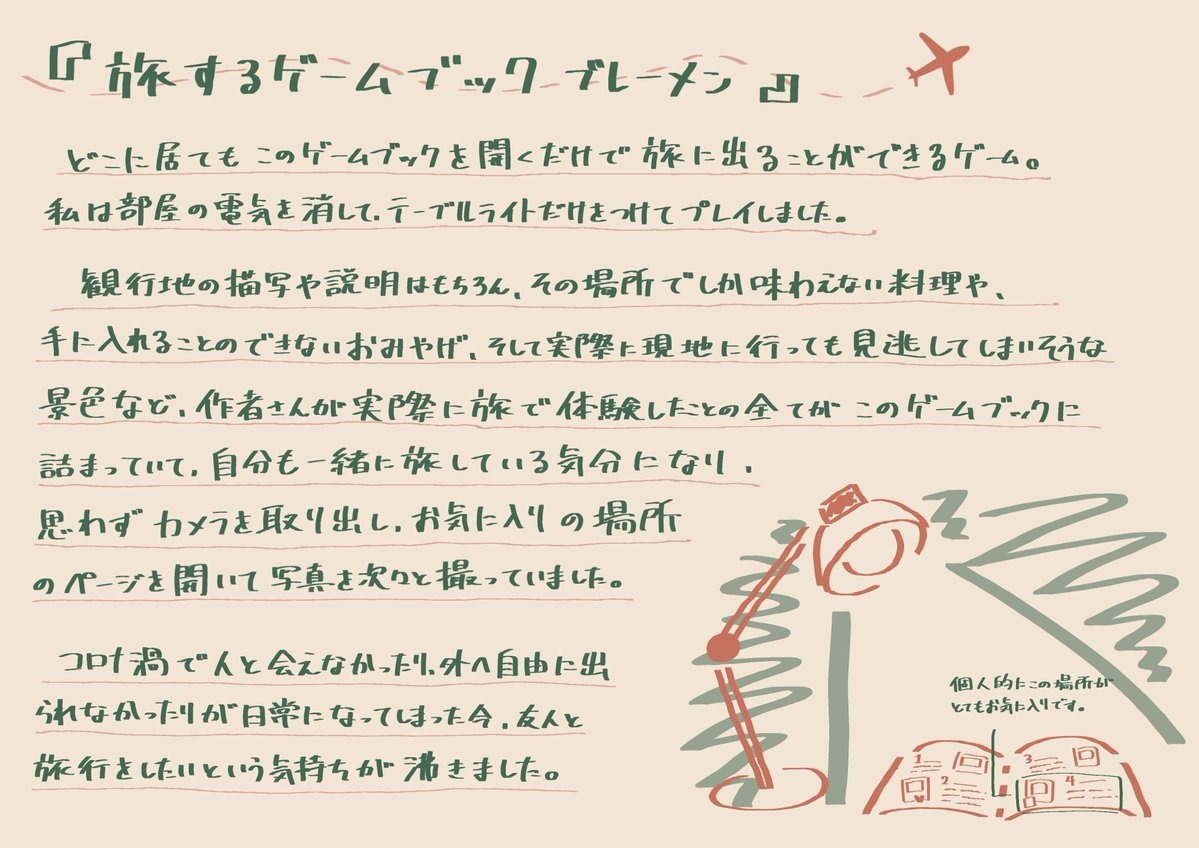 『旅するゲームブック ブレーメン』
どこに居てもこのゲームブックを開くだけで旅に出ることができるゲーム。
私は部屋の電気を消して、テーブルライトだけをつけてプレイしました。
観行地の描写や説明はもちろん、その場所でしか味わえない料理や、
手に入れることのできないおみやげ、そして実際に現地に行っても見逃してしまいそうな
景色など、作者さんが実際に旅で体験したことの全てがこのゲームブックに
詰まっていて、自分も一緒に旅している気分になり、
思わずカメラを取り出し、お気に入りの場所
のページを開いて写真を次々と撮っていました。
コロナ渦で人と会えなかったり、外へ自由に出
られなかったりが日常になってしまった今、友人と
旅行をしたいという気持ちが沸きました。
個人的にこの場所が
とてもお気に入りです。
1
2
3
4